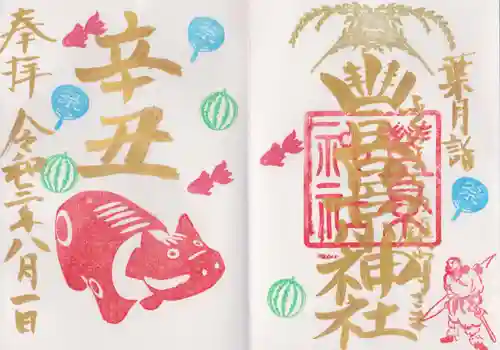 葉月詣
豊景神社
辛丑
奉拝
令和三年八月一日
祭
祭
祭